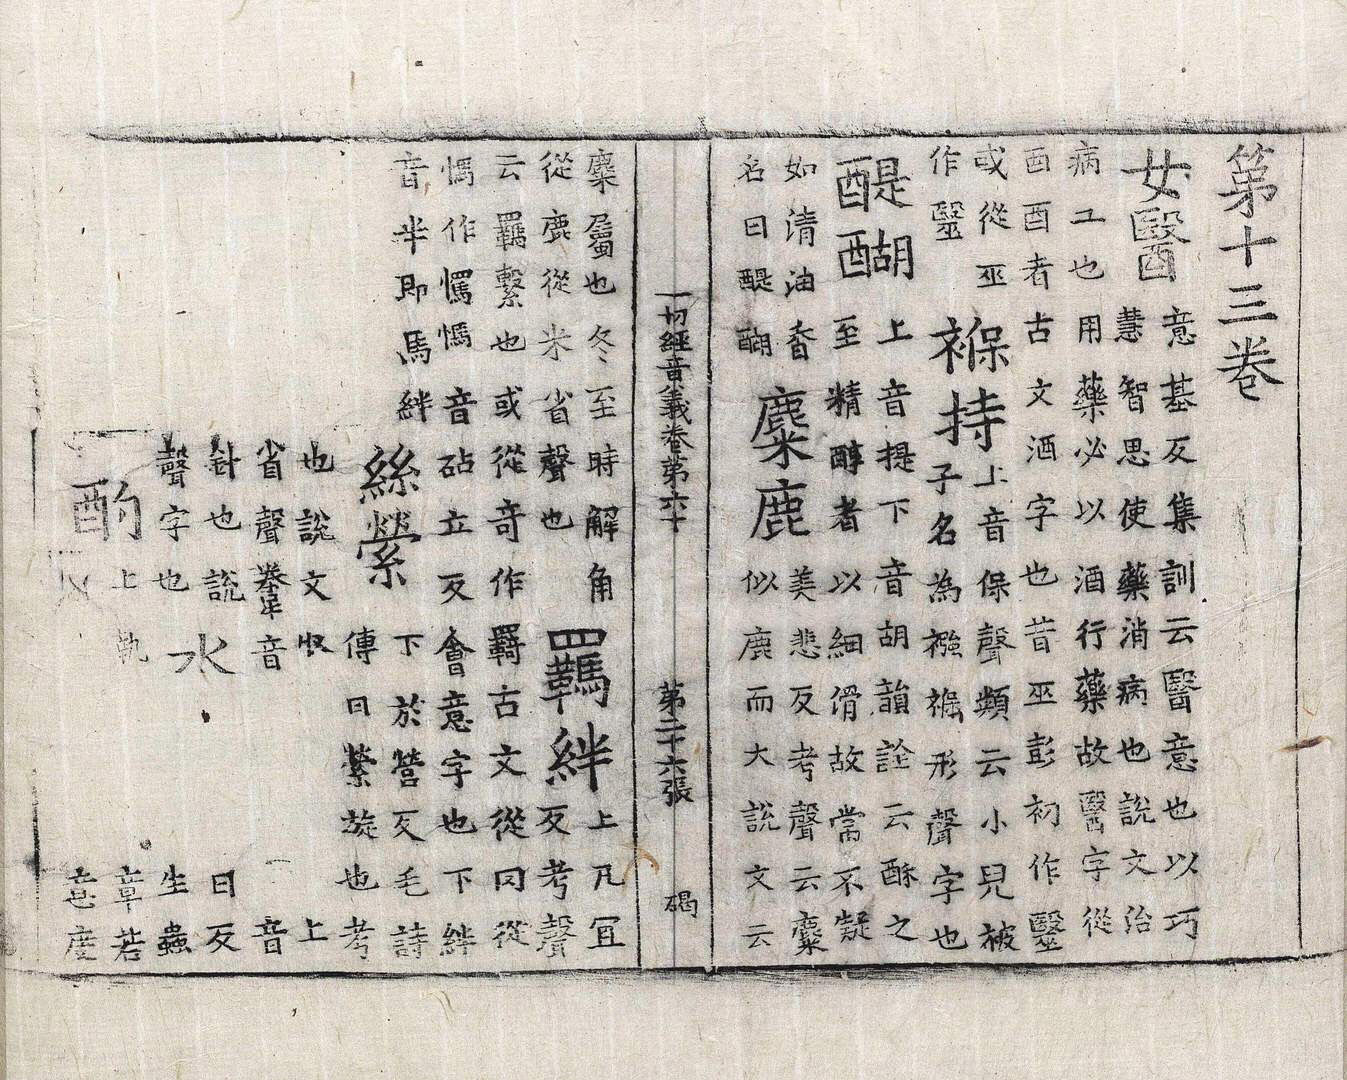 第十三卷
女醫
意基反集訓云醫意也以巧
慧智思使藥消病也說文治
病工也用藥必以酒行藥故醫字從
酉酉者古文酒字也昔巫彭初作毉
或從巫
作毉
褓持
上音保聲類云小兒被
子名為襁褓形聲字也
醍醐
上音提下音胡韻詮云酥之
至精醇者以細滑故常不凝
如清油香
名曰醍醐
麋鹿
美悲反考聲云麋
似鹿而大說文云
一切經音義卷第六十 第二十六張 碣
麋屬也冬至時解角
從鹿從米省聲也
羈絆
上几冝
反考聲
云羈繫也或從奇作羇古文從冂從
作音砧立反會意字也下絆
音半即馬絆
絲縈
下於營反毛詩
傳曰縈旋也考
也說文収 上
省聲音 音
針也說 曰反
聲字也 生蟲
水
酌
上 章若
度